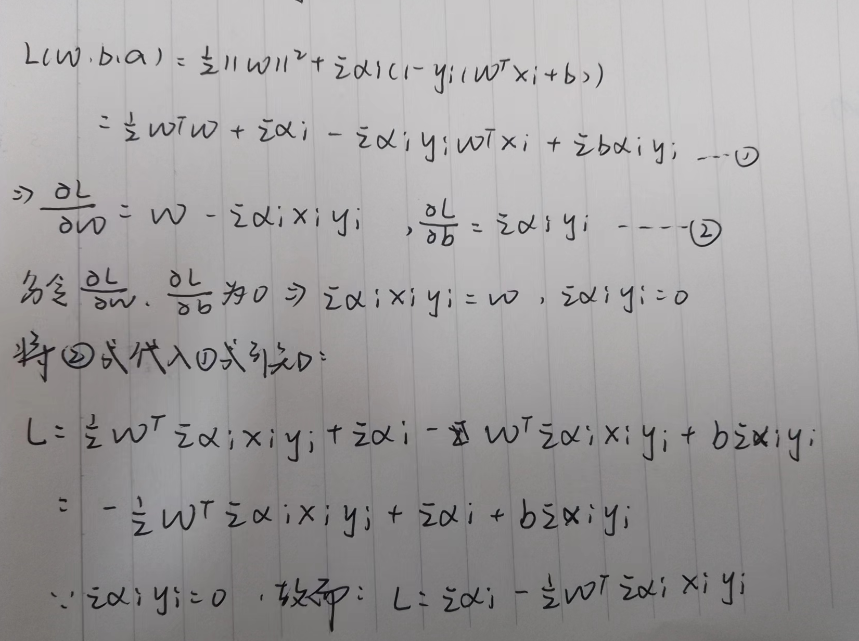 L(w.b.a) = ½||w||² + Σαi(1-yi(wᵀxi+b))
= ½wᵀw + Σαi - Σαiyiwᵀxi + Σbαiyi ---①
⇒ ∂L/∂w = w - Σαixiyi , ∂L/∂b = Σαiyi -----②
∂L/∂w、∂L/∂b 为0 ⇒ Σαixiyi = w , Σαiyi = 0
将②式代入①式
L = ½wᵀΣαixiyi + Σαi - wᵀΣαixiyi + bΣαiyi
= -½wᵀΣαixiyi + Σαi + bΣαiyi
∵ Σαiyi = 0 , 故 : L = Σαi - ½wᵀΣαixiyi